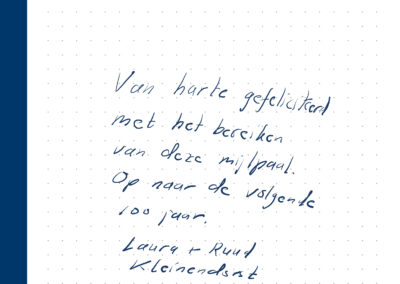 Van harte gefeliciteerd
met het bereiken
van deze mijlpaal.
Op naar de volgende
100 jaar.
Laura + Ruud
Kleinendorst